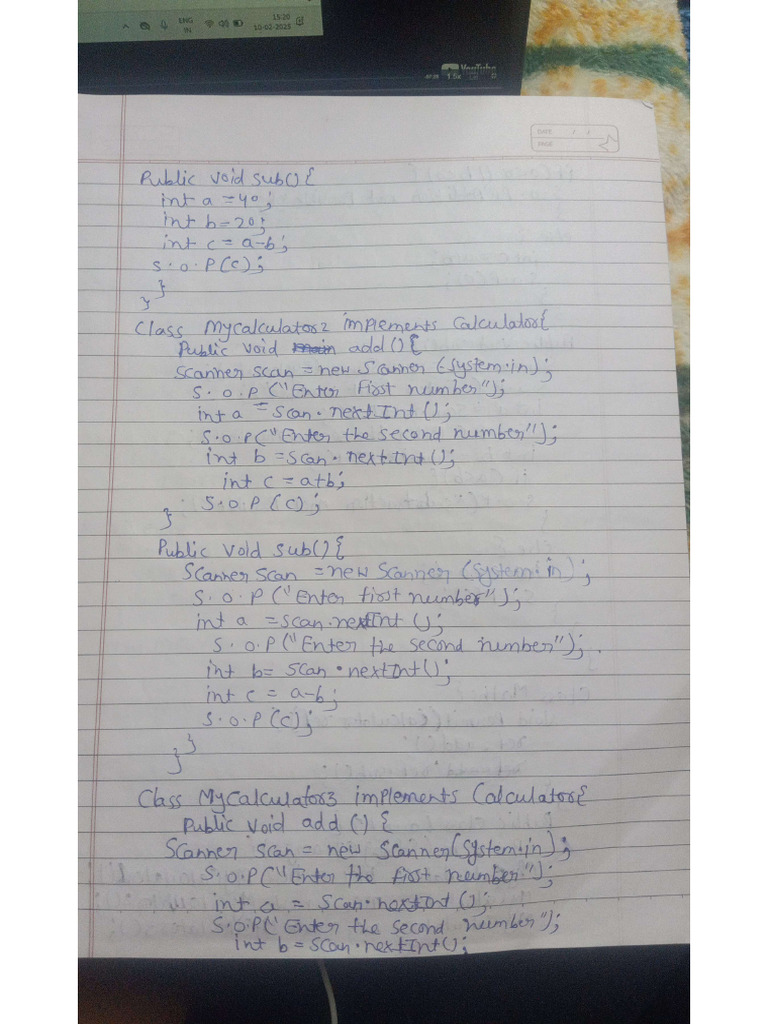 ENG
IN
15:20
10-02-2025
YouTube
1.5x
DATE / /
PAGE
Public void sub(){
int a =40;
int b=20;
int c = a-b;
S.O.P(c);
}
}
Class MyCalculator2 implements Calculator{
Public void main add(){
Scanner scan = new Scanner (System.in);
S.O.P ("Enter First number");
int a = scan.nextInt();
S.O.P("Enter the second number");
int b =scan.nextInt();
int c = a+b;
S.O.P (c);
}
Public void sub(){
Scanner scan = new Scanner (System.in);
S.O.P ("Enter first number");
int a =scan.nextInt();
S.O.P("Enter the second number");.
int b= scan.nextInt();
int c = a-b;
S.O.P(c);
}
}
Class MyCalculator3 implements Calculator{
Public void add () {
Scanner scan = new Scanner(System.in);
S.O.P("Enter the first number");
int a = scan.nextInt();
S.O.P("Enter the second number");
int b = scan.nextInt();